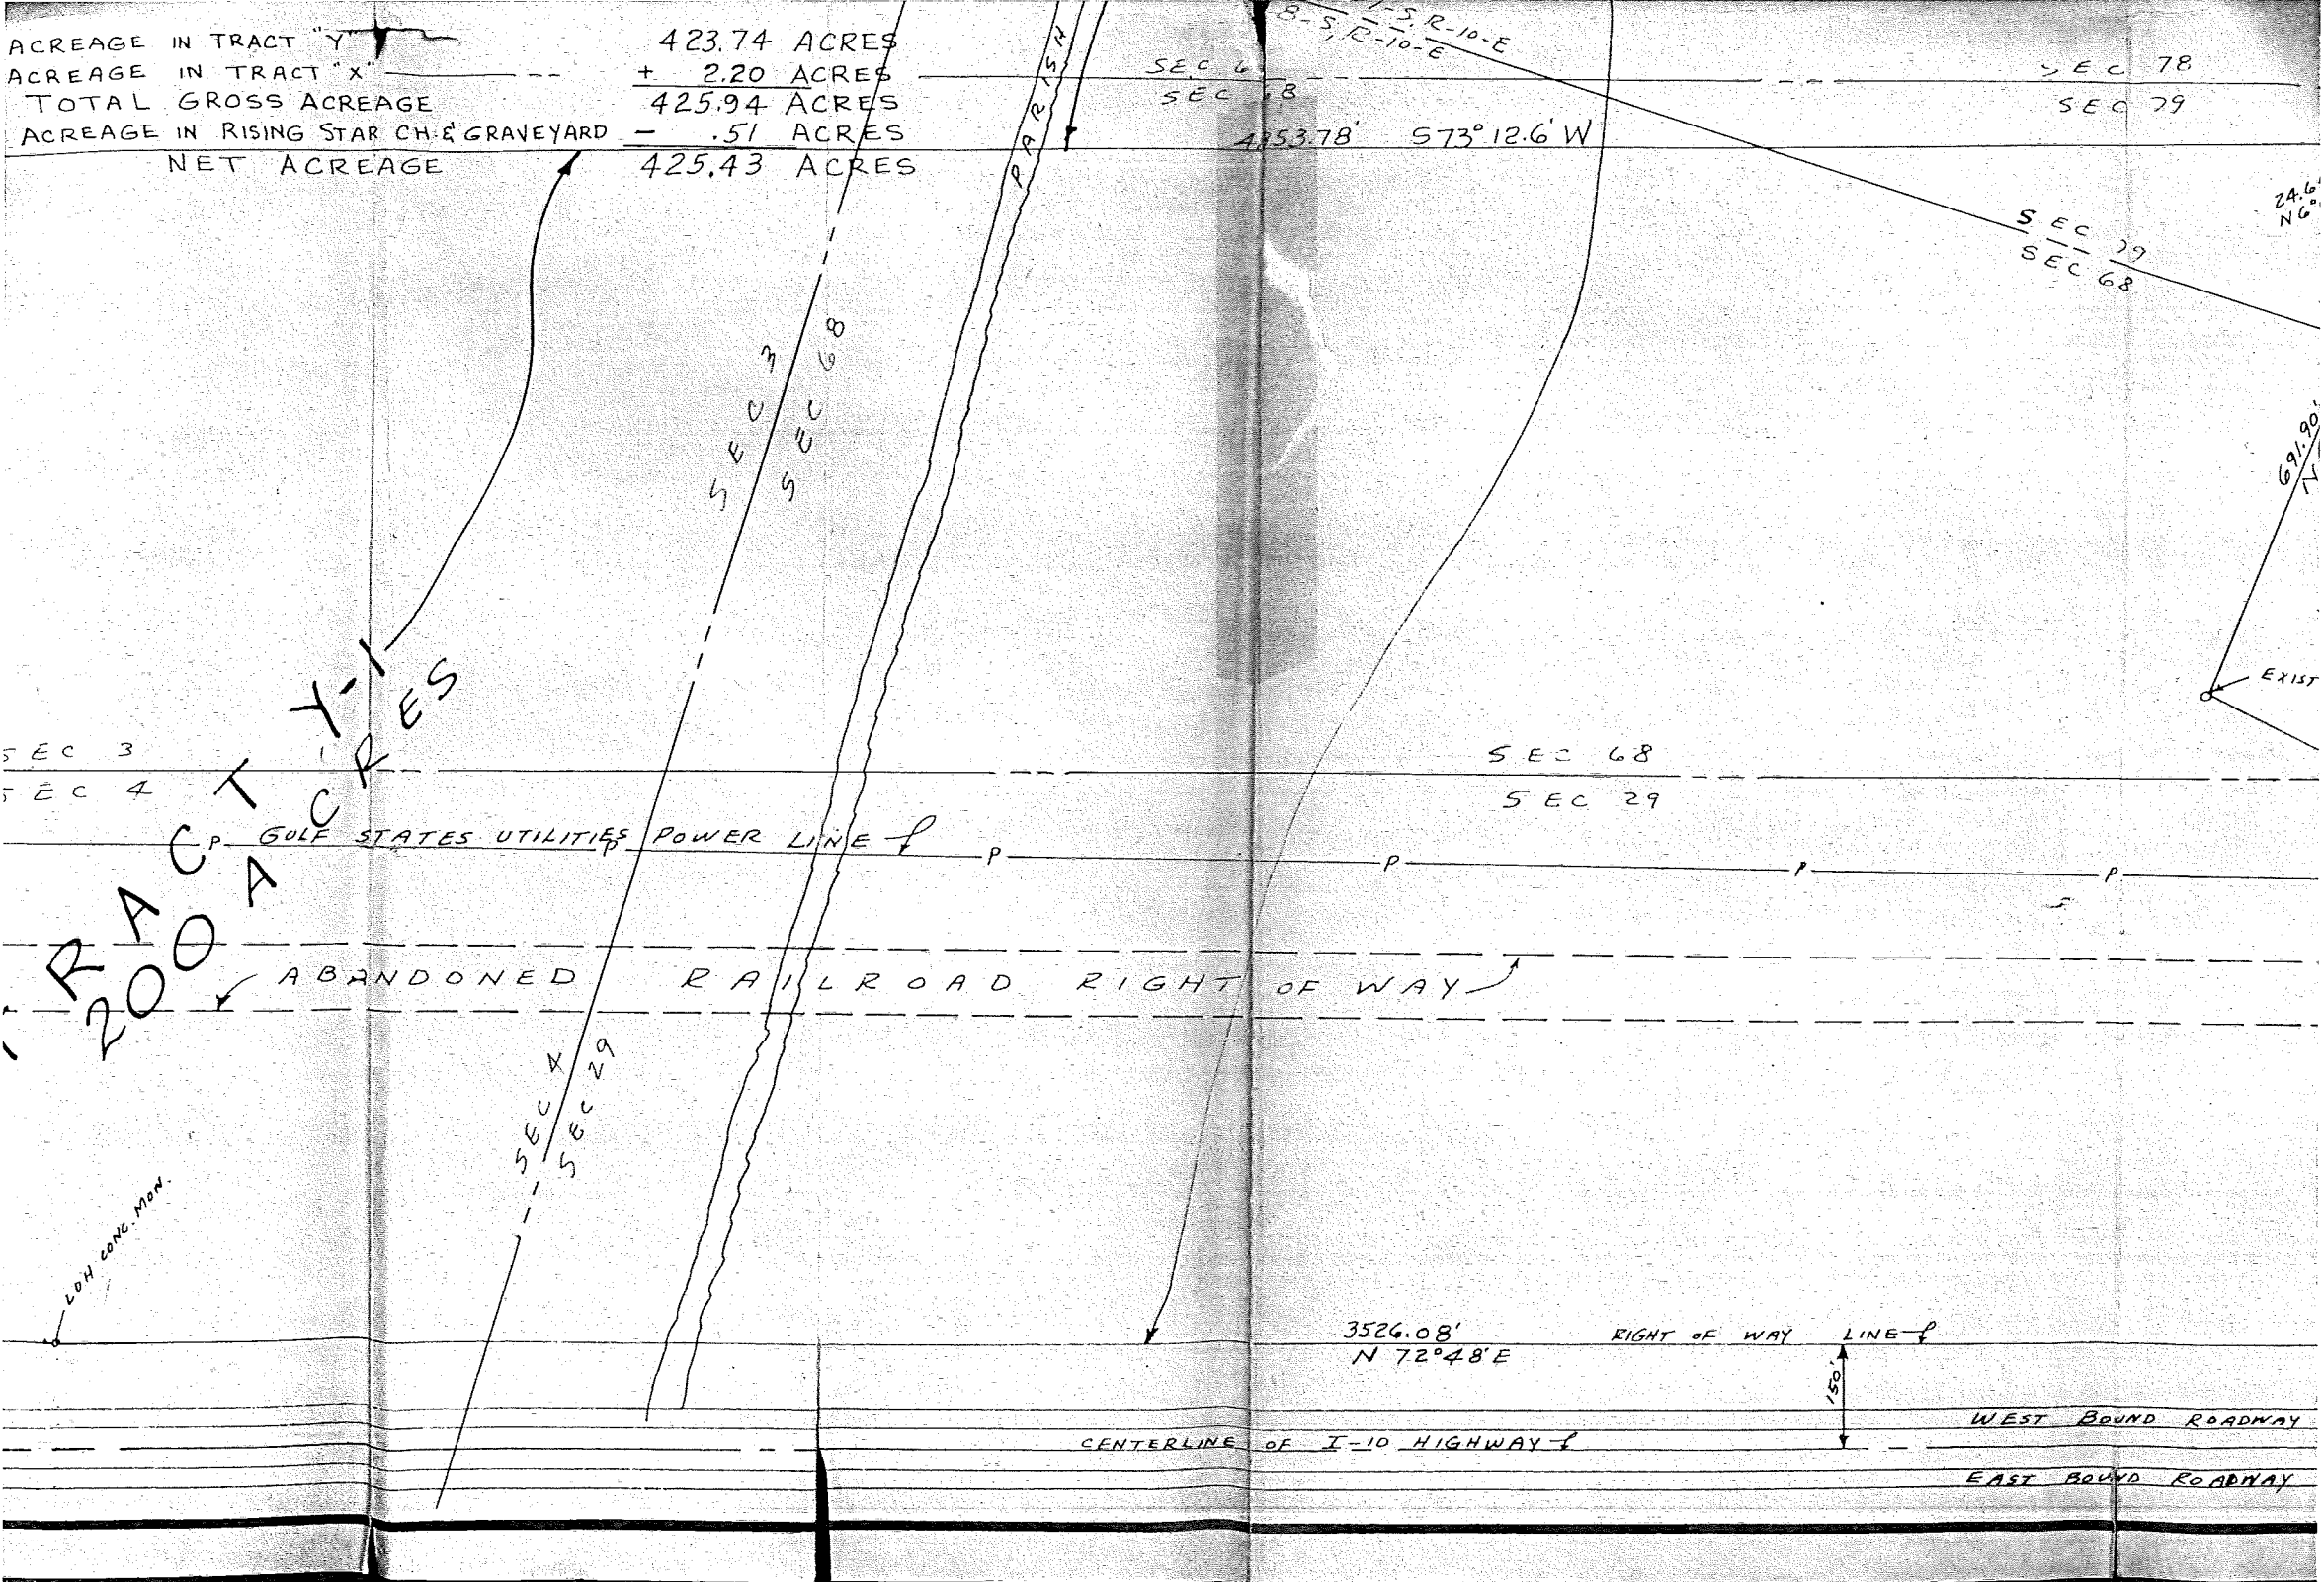 ACREAGE IN TRACT "Y" 423.74 ACRES
ACREAGE IN TRACT "X" + 2.20 ACRES
TOTAL GROSS ACREAGE 425.94 ACRES
ACREAGE IN RISING STAR CH. & GRAVEYARD - .51 ACRES
NET ACREAGE 425.43 ACRES
PARISH
S, R-10-E
8-S, R-10-E
SEC
SEC
SEC 78
SEC 79
S 73° 12.6' W
24.6'
SEC 79
SEC 68
SEC 3
SEC 68
691.90'
EXIST
TRACT Y-1
200 ACRES
SEC 3
SEC 4
SEC 68
SEC 29
P GULF STATES UTILITIES POWER LINE
P P P P P
ABANDONED RAILROAD RIGHT OF WAY
SEC 4
SEC 29
LDH CONC. MON.
3526.08'
N 72°48'E
RIGHT OF WAY LINE
150'
WEST BOUND ROADWAY
CENTERLINE OF I-10 HIGHWAY
EAST BOUND ROADWAY